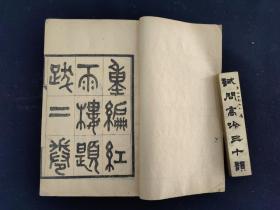 重編紅
雨樓題
跋二卷
試問高吟三十韻